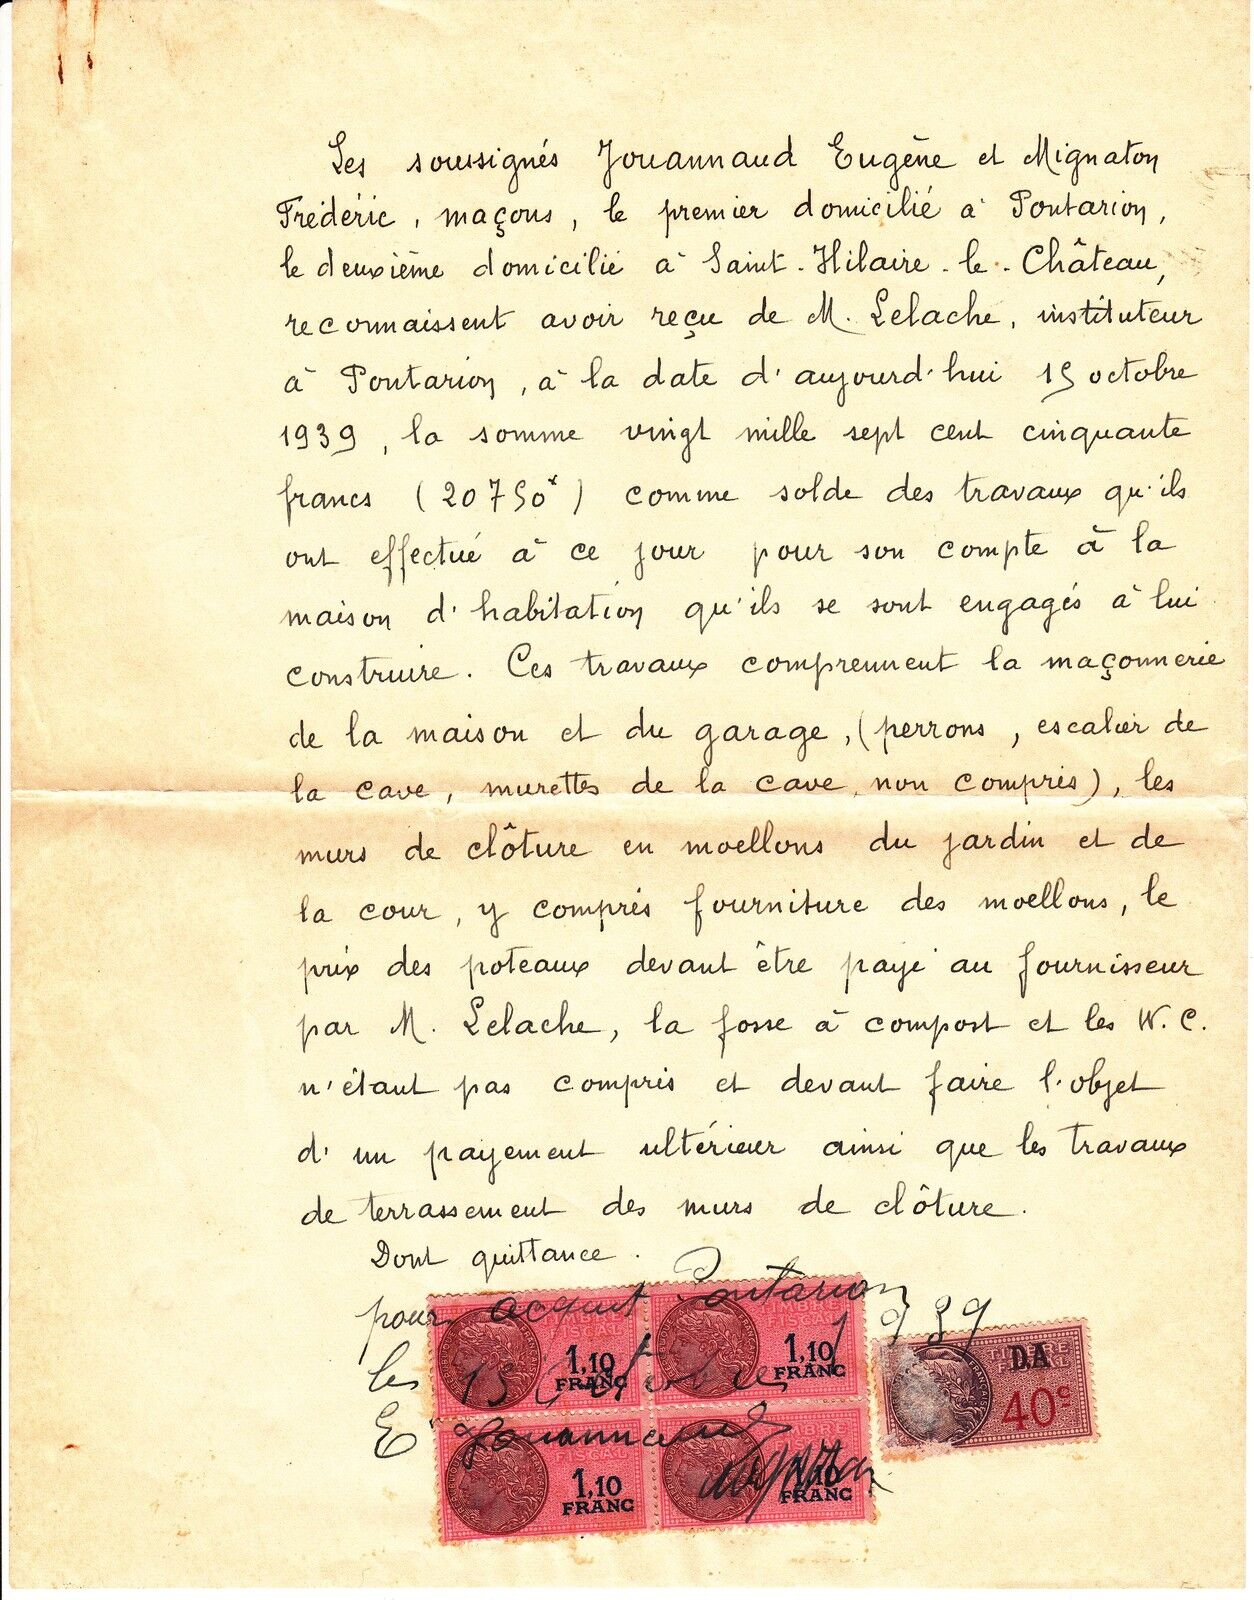 Les soussignés Jouannaud Eugène et Mignaton
Frédéric, maçons, le premier domicilié à Pontarion,
le deuxième domicilié à Saint-Hilaire-le-Château,
reconnaissent avoir reçu de M. Lelache, instituteur
à Pontarion, à la date d'aujourd'hui 15 octobre
1939, la somme vingt mille sept cent cinquante
francs (20750f) comme solde des travaux qu'ils
ont effectué à ce jour pour son compte à la
maison d'habitation qu'ils se sont engagés à lui
construire. Ces travaux comprennent la maçonnerie
de la maison et du garage, (perrons, escalier de
la cave, murettes de la cave, non compris), les
murs de clôture en moellons du jardin et de
la cour, y compris fourniture des moellons, le
prix des poteaux devant être payé au fournisseur
par M. Lelache, la fosse à compost et les W.C.
n'étant pas compris et devant faire l'objet
d'un payement ultérieur ainsi que les travaux
de terrassement des murs de clôture.
Dont quittance.
pour acquit Pontarion
les 15 Octobre 1939
E Jouannaud
TIMBRE FISCAL
1,10 FRANC
TIMBRE FISCAL
1,10 FRANC
TIMBRE FISCAL
1,10 FRANC
1,10 FRANC
TIMBRE FISCAL
DA
40c